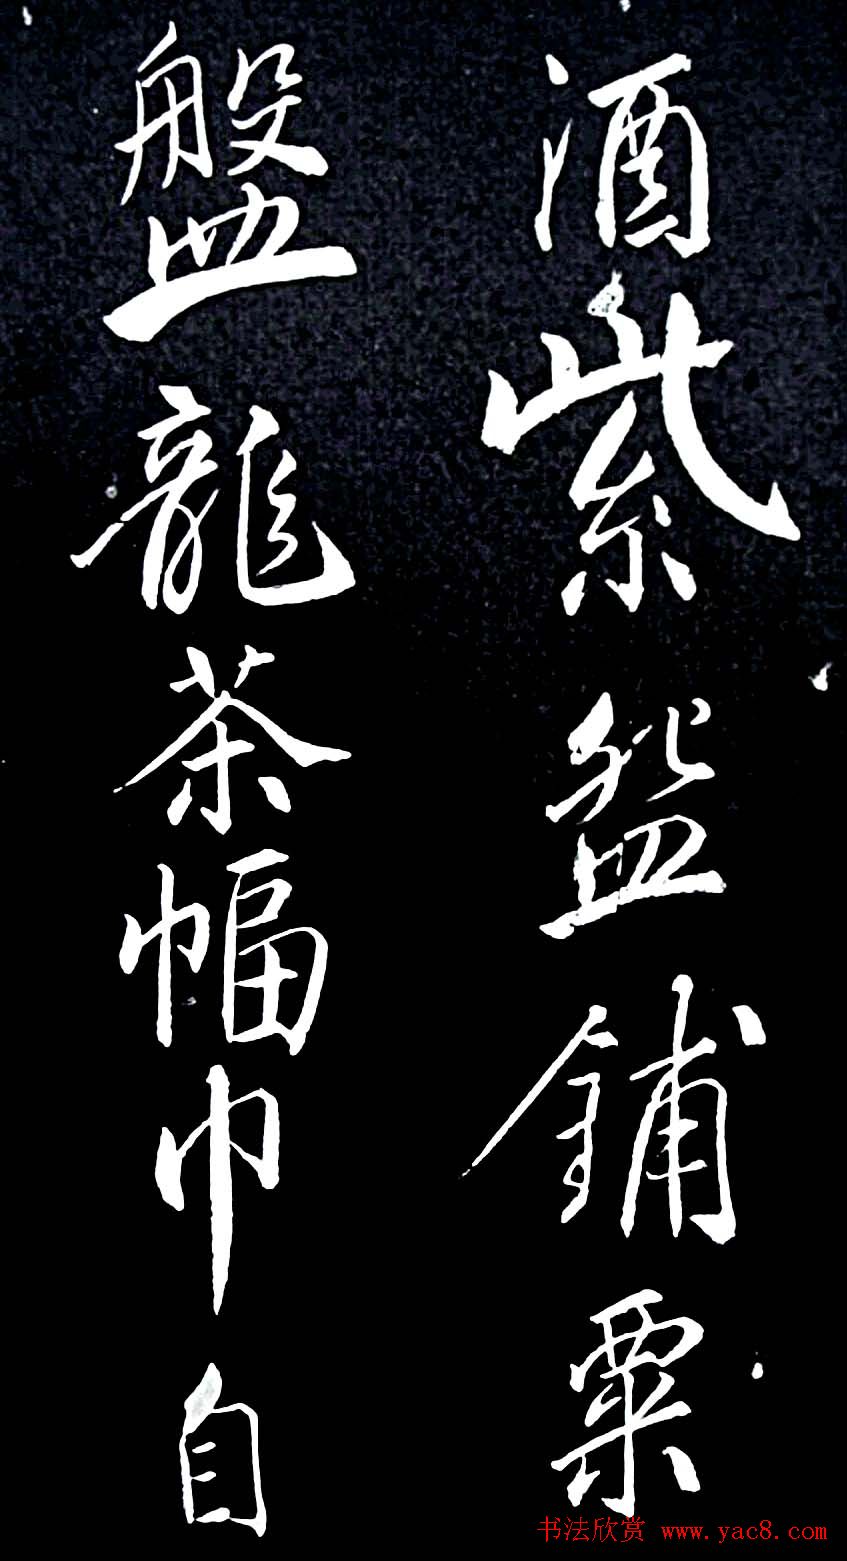 酒紫盌鋪粟
盤龍茶幅巾自
书法欣赏 www.yac8.com